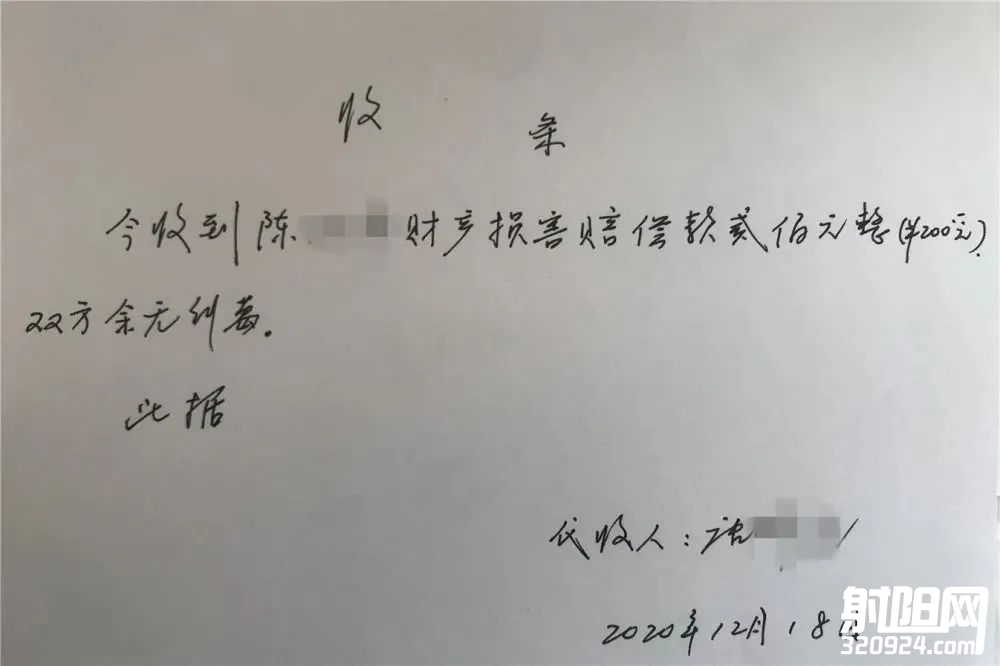 收 条
今收到陈 财产损害赔偿款贰佰元整(¥200元).
双方余无纠葛。
此据
代收人:
2020年12月18日
射阳网
320924.com